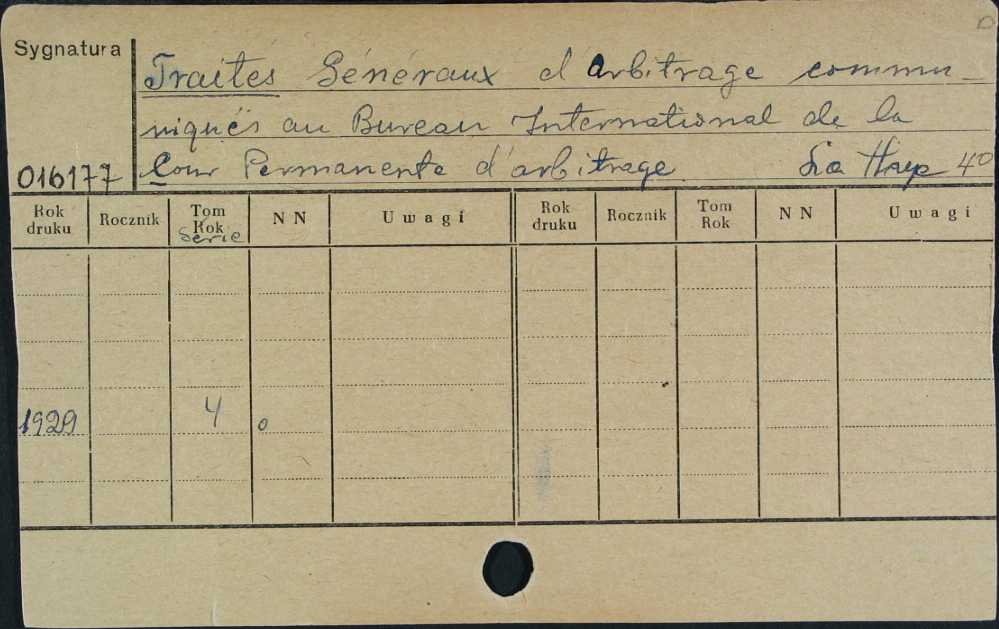 Sygnatura
Traités Généraux d'arbitrage commu-
niqués au Bureau International de la
016177 Cour Permanente d'arbitrage. La Haye 4°
Rok druku Rocznik Tom Rok Serie NN Uwagi Rok druku Rocznik Tom Rok NN Uwagi
1929 4 o